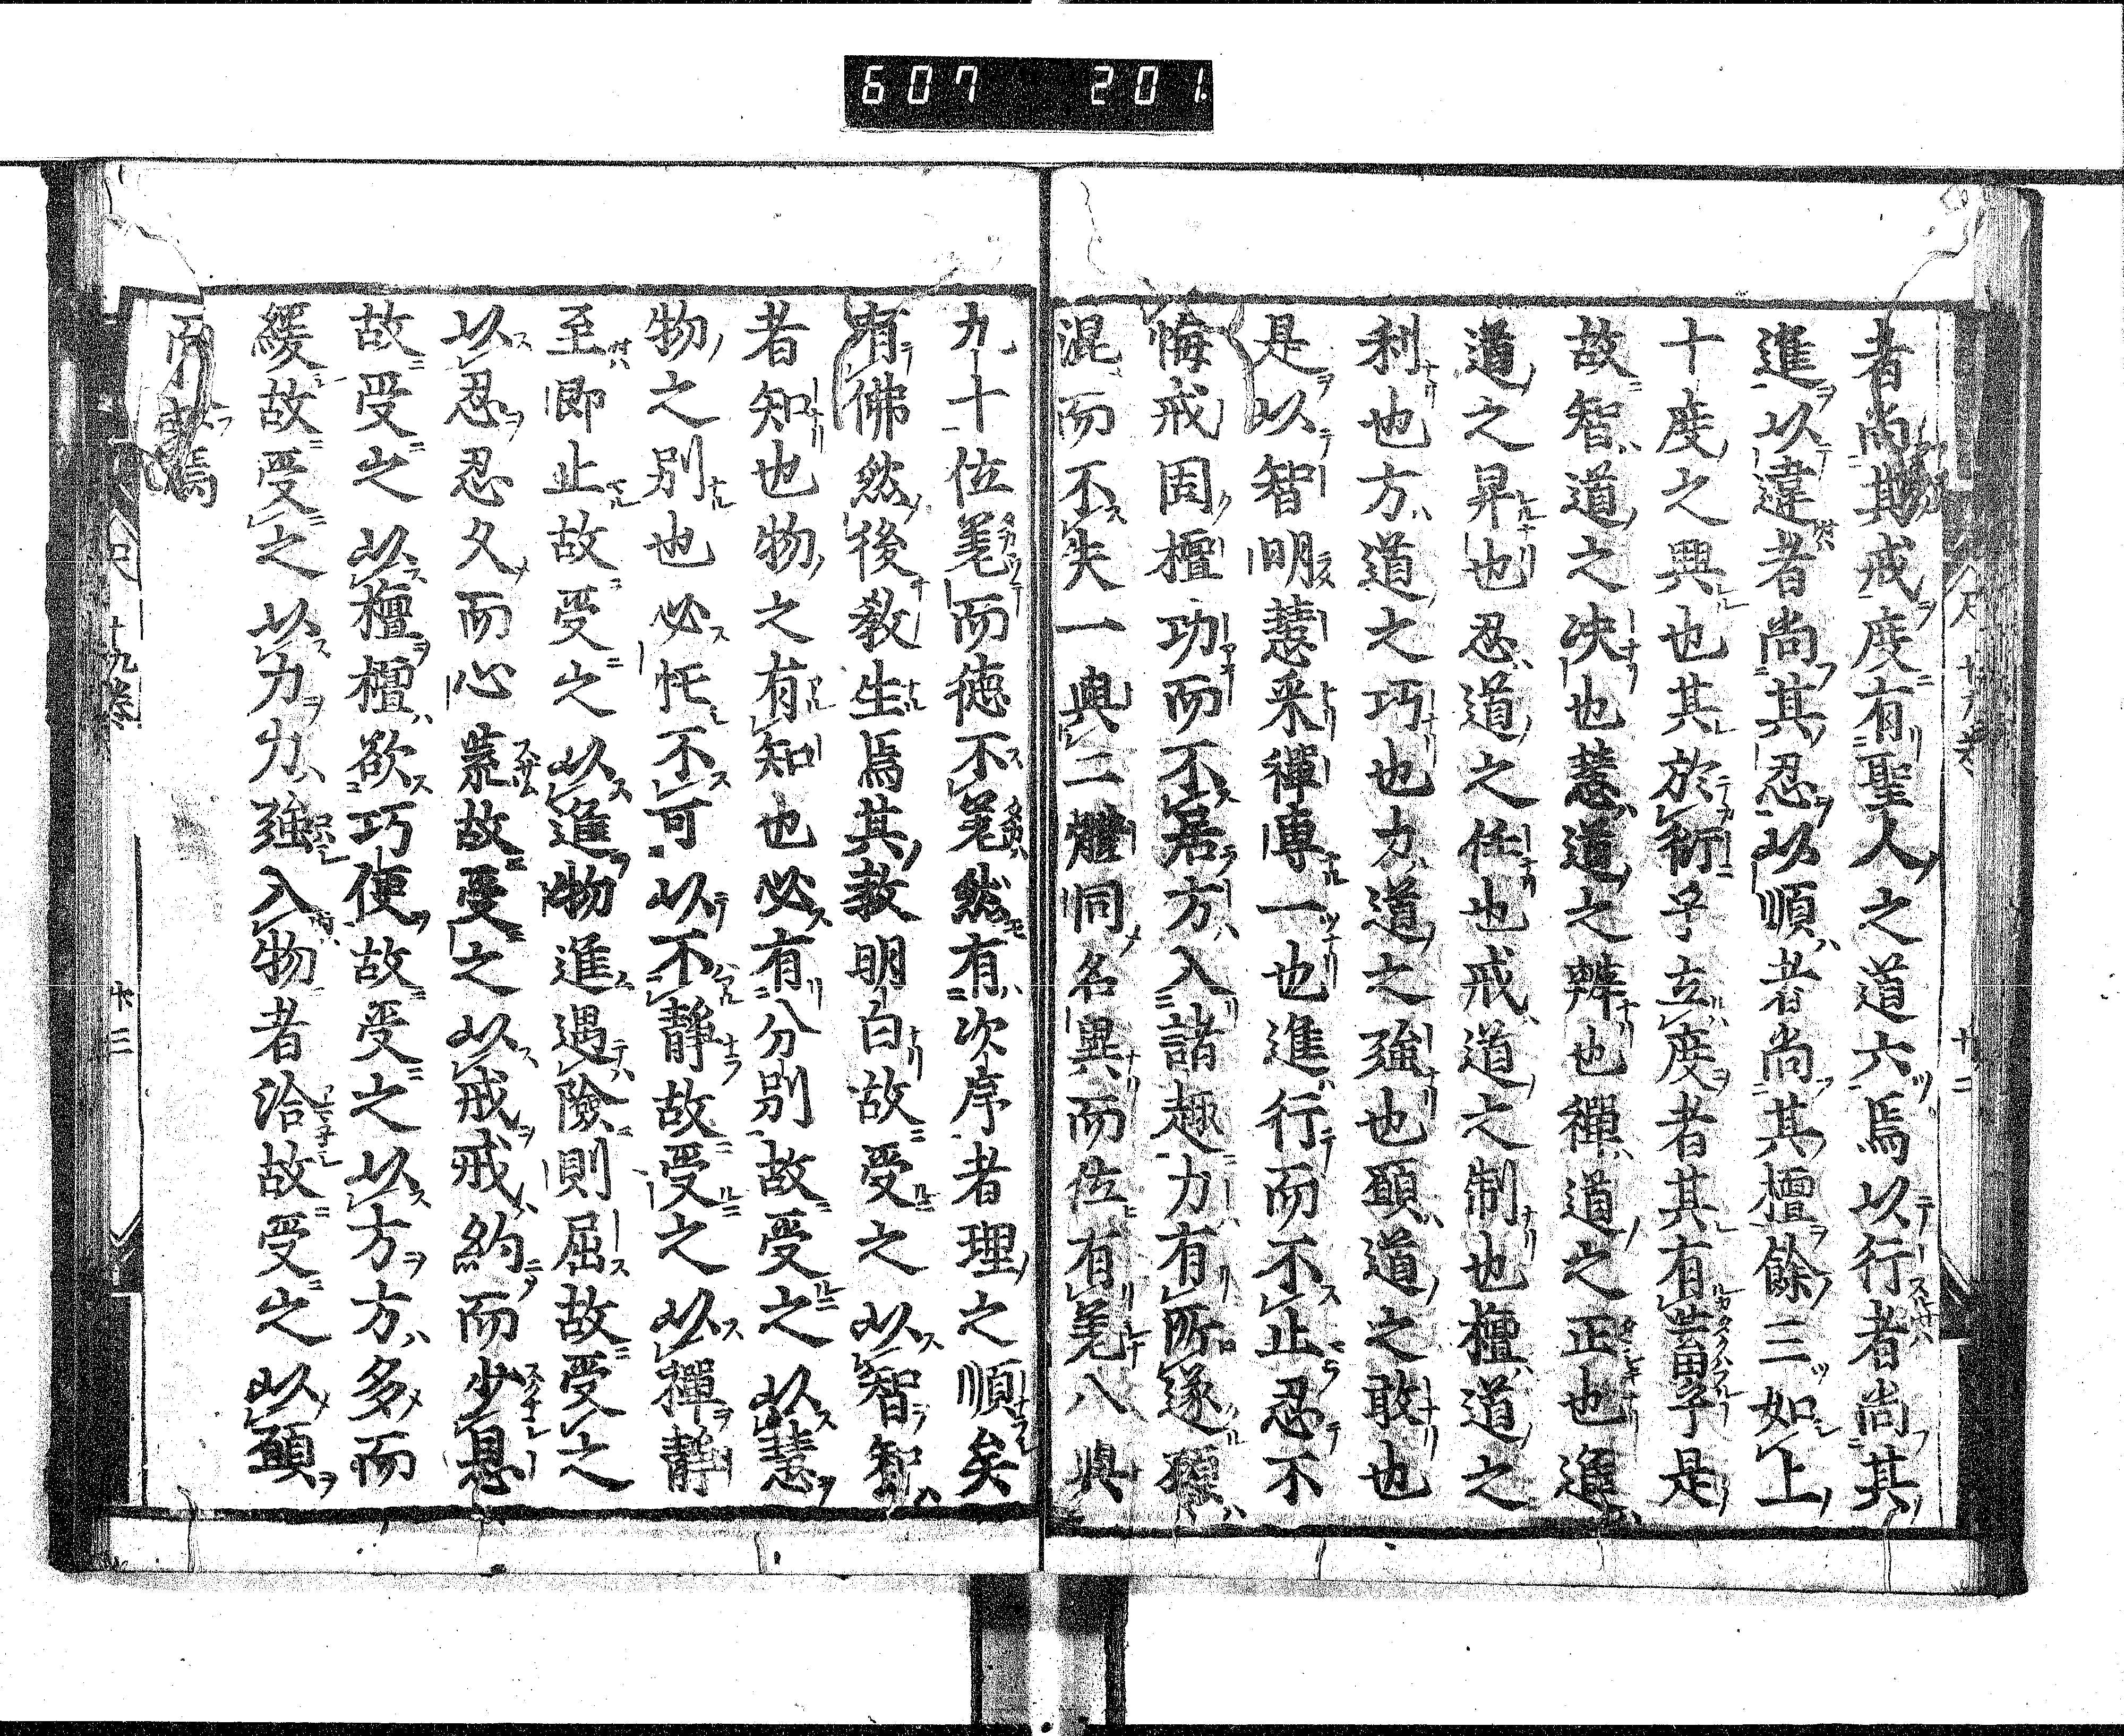 607 201
者尚其戒度有聖人之道六焉以行者尚其
進以違者尚其忍以順者尚其檀餘三如上
十度之興也其於衍乎立度者其有菑乎是
故智道之决也慧道之辨也禪道之正也進
道之昇也忍道之任也戒道之制也檀道之
利也方道之巧也力道之強也願道之敢也
是以智明慧釆禪專一也進行而不止忍不
悔戒固檀功而不居方入諸趣力有所遂願
混而不失一與二體同名異而位有差八與
九十位差而德不差然有次序者理之順矣
有佛然後教生焉其教明白故受之以智智
者知也物之有知也必有分別故受之以慧
物之別也必怅不可以不靜故受之以禪靜
至即止故受之以進物進遇險則屈故受之
以忍忍久而心縈故受之以戒戒約而少息
故受之以檀檀欲巧使故受之以方方多而
緩故受之以力力強入物者洽故受之以願
而 焉
十九卷
十三
十九卷
十二